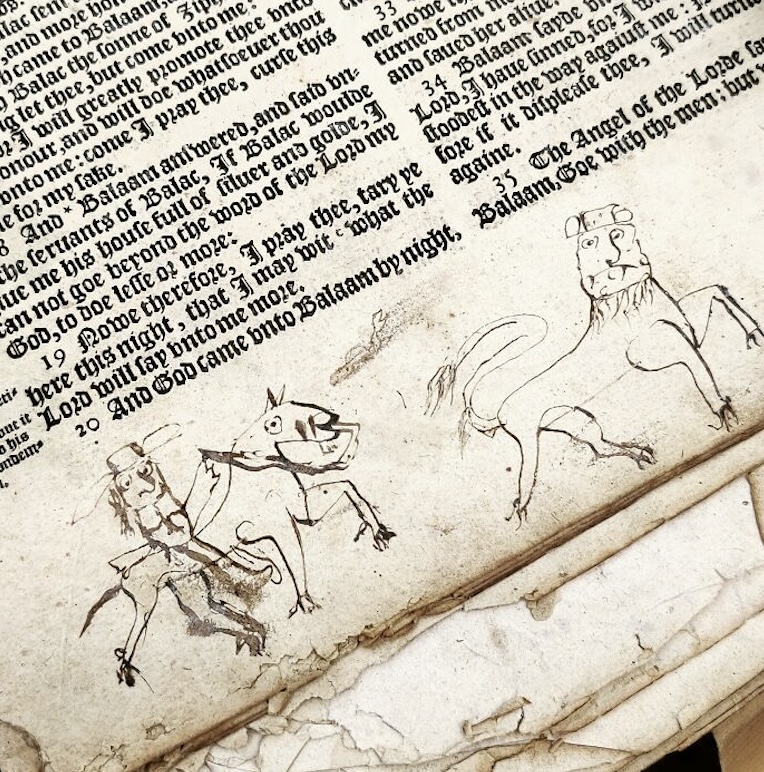 and more hono
h came to Balaam,
Balac the sonne of Ziph
let thee, but come vnto me:
I will greatly promote thee vnto
onour, and will doe whatsoeuer thou
vnto me: come I pray thee, curse this
le for my sake.
8 And * Balaam answered, and said vn-
the seruants of Balac, If Balac woulde
ue me his house full of siluer and golde, I
can not goe beyond the word of the Lord my
God, to doe lesse or more:
19 Nowe therefore, I pray thee, tary ye
here this night, that I may wit what the
Lord will say vnto me more.
20 And God came vnto Balaam by night,
33
me nowe
turned from me
and saued her aliue.
34 Balaam sayde
Lord, I haue sinned, for I
stoodest in the way against me:
fore if it displease thee, I will turne
againe.
35 The Angel of the Lorde sa
Balaam, Goe with the men: but